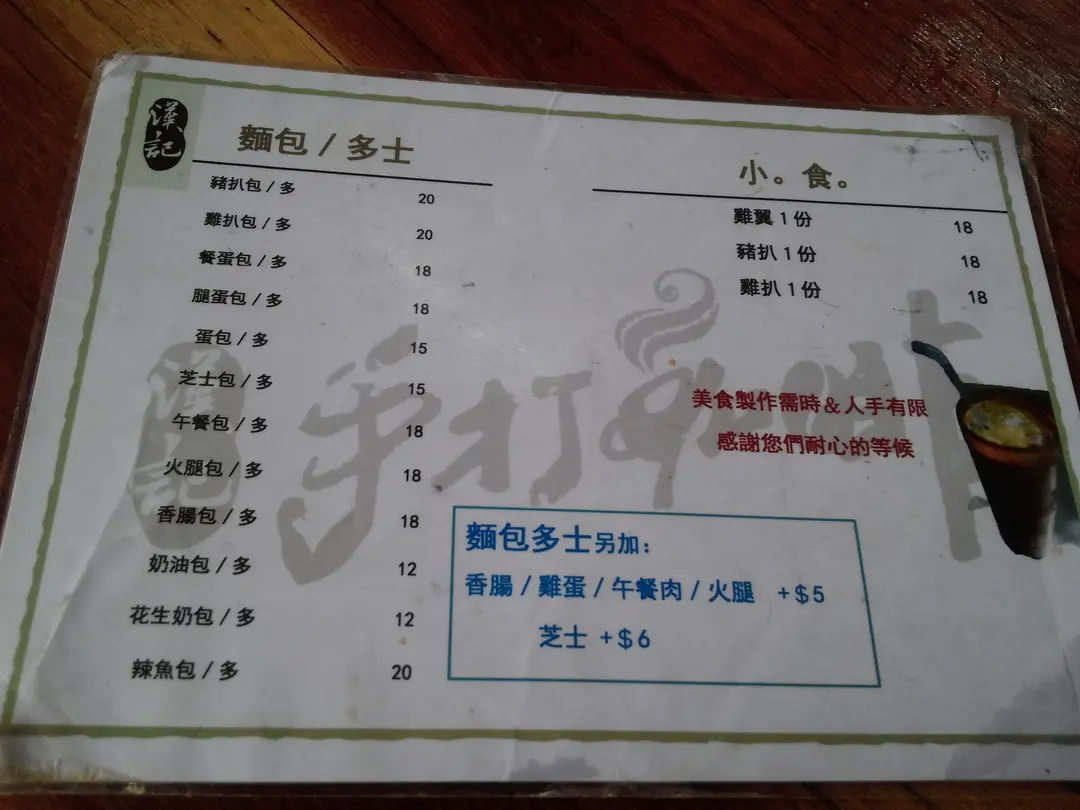 漢記
麵包 / 多士
豬扒包 / 多 20
雞扒包 / 多 20
餐蛋包 / 多 18
腿蛋包 / 多 18
蛋包 / 多 15
芝士包 / 多 15
午餐包 / 多 18
火腿包 / 多 18
香腸包 / 多 18
奶油包 / 多 12
花生奶包 / 多 12
辣魚包 / 多 20
小。食。
雞翼 1 份 18
豬扒 1 份 18
雞扒 1 份 18
美食製作需時&人手有限
感謝您們耐心的等候
麵包多士另加:
香腸 / 雞蛋 / 午餐肉 / 火腿 +$5
芝士 +$6
漢記
手打咖啡